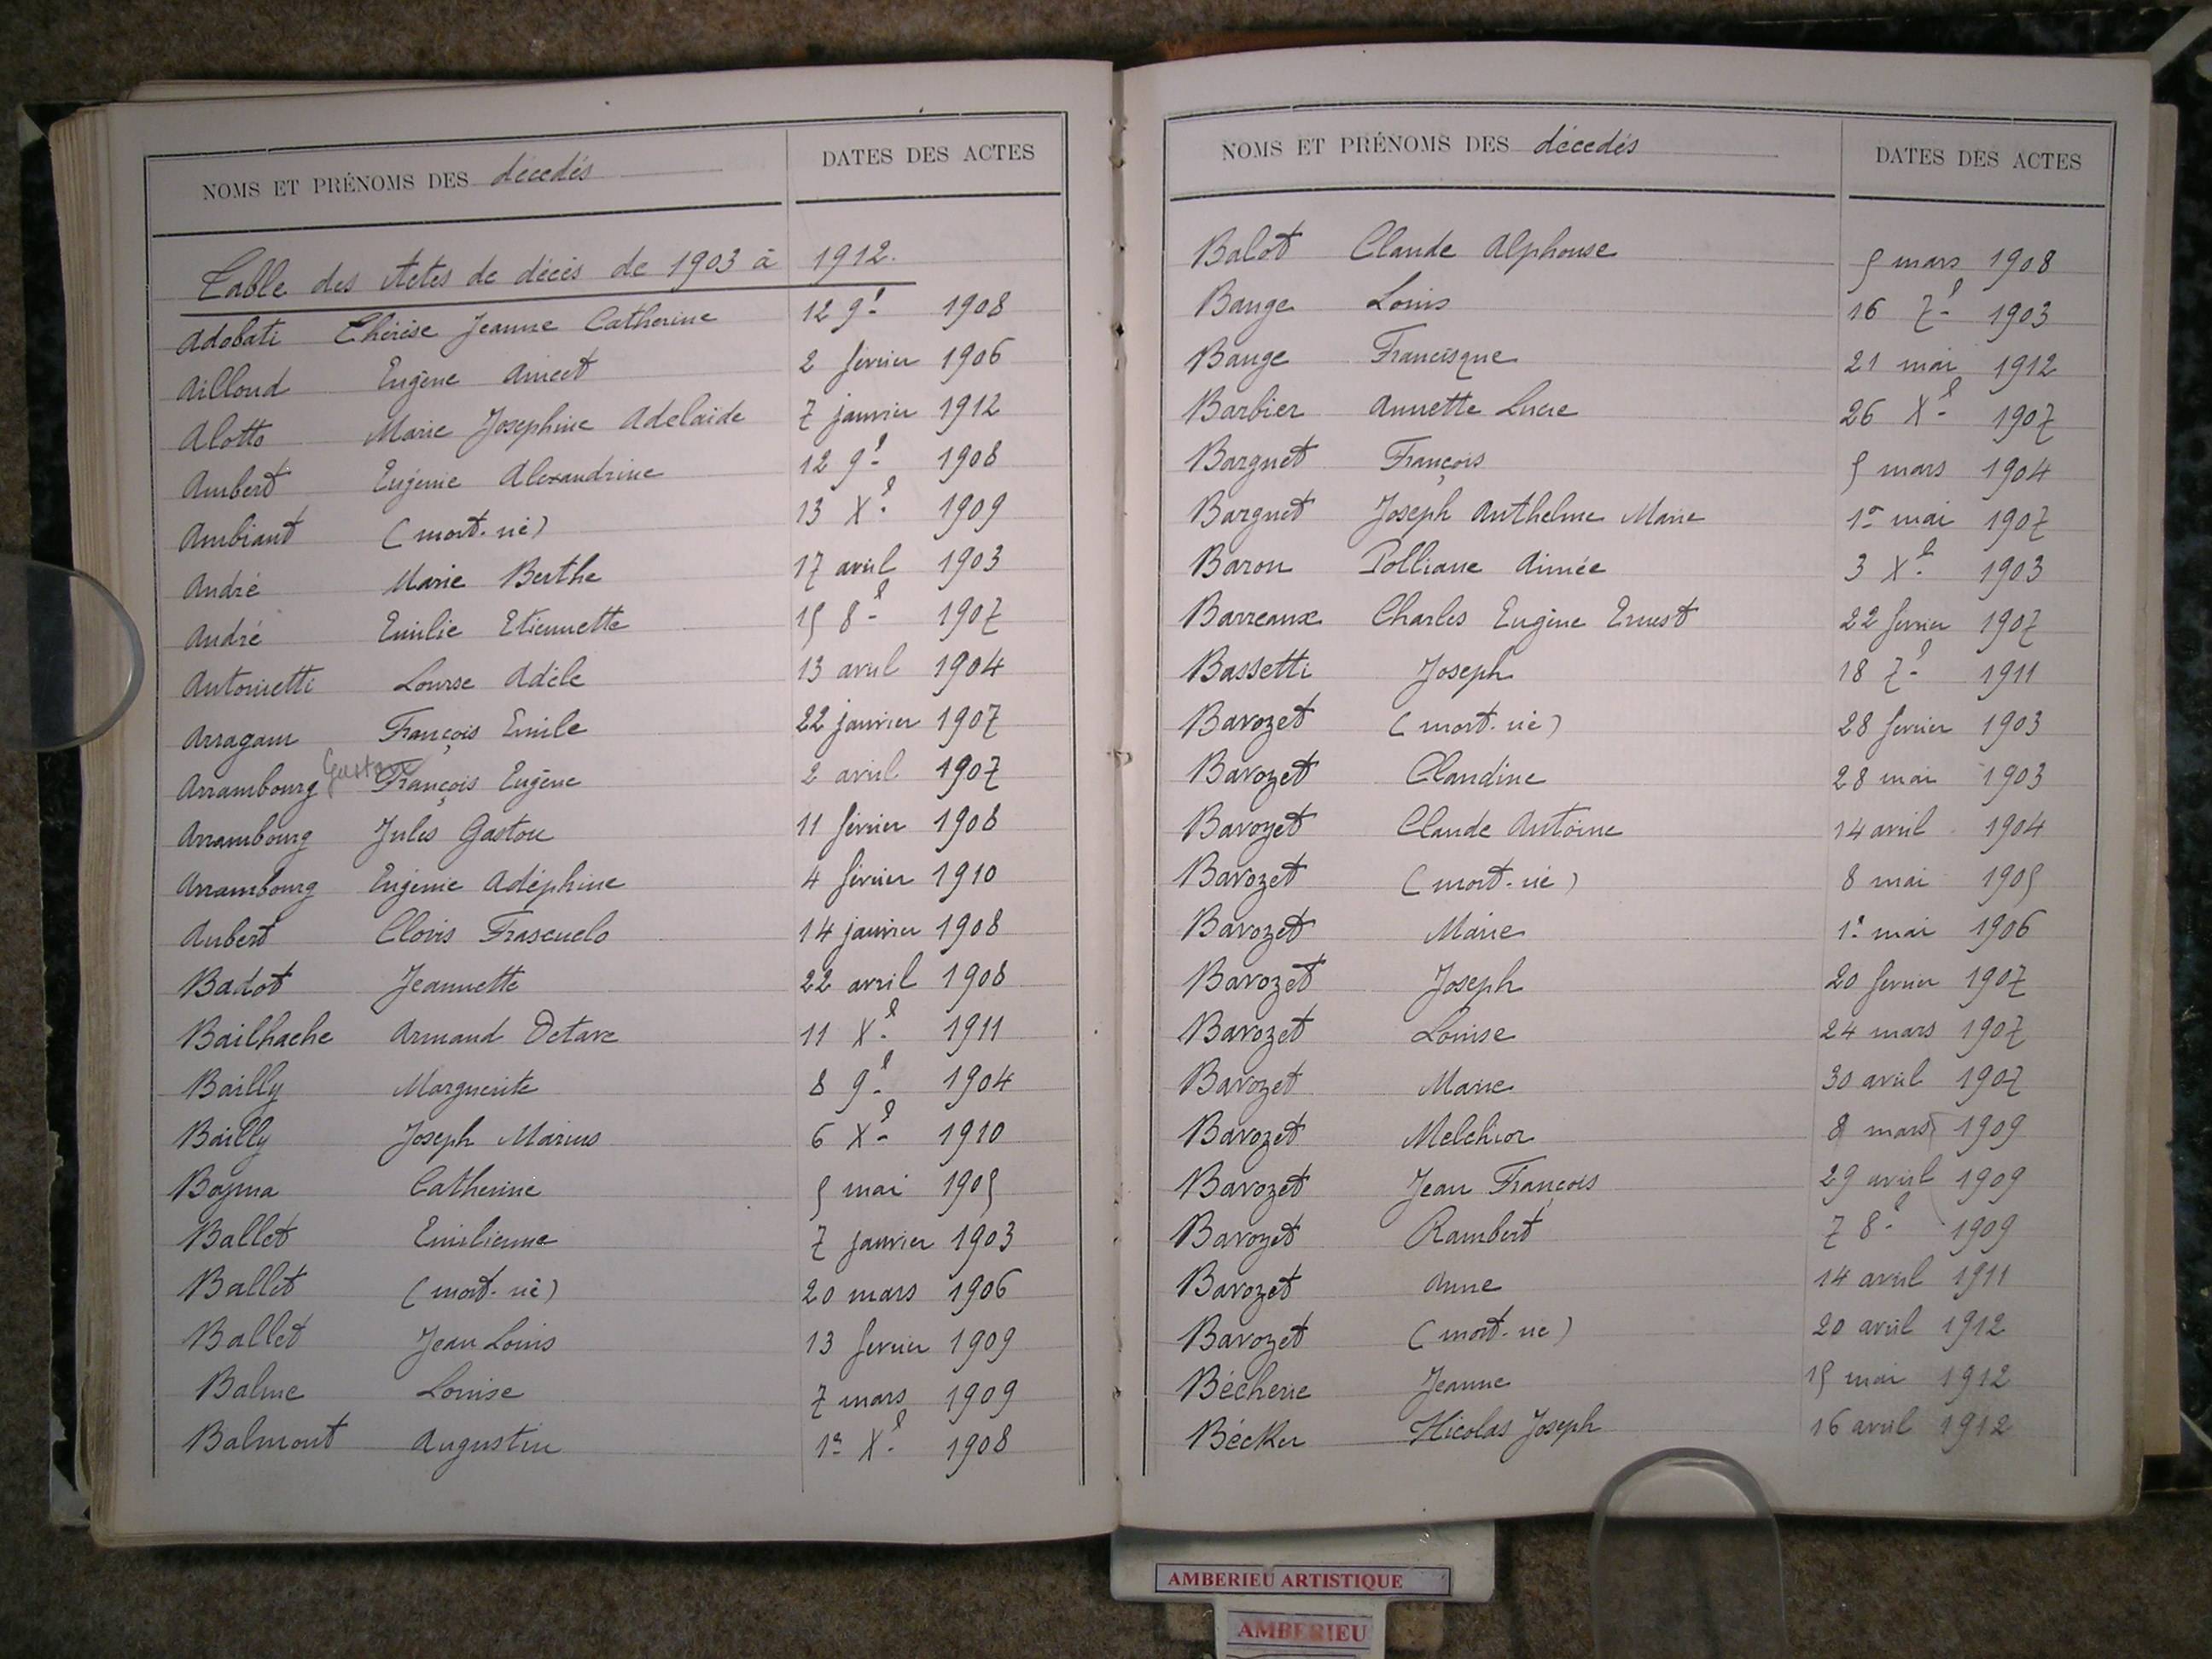 NOMS ET PRÉNOMS DES décédés DATES DES ACTES
Table des Actes de décès de 1903 à 1912.
Adobati Thérèse Jeanne Catherine 12 9b. 1908
Ailloud Eugène Anicet 2 février 1906
Alotto Marie Josephine Adelaide 7 janvier 1912
Ambert Eugénie Alexandrine 12 9b. 1908
Ambiaut (mort-né) 13 Xb. 1909
André Marie Berthe 17 avril 1903
André Emilie Etiennette 15 8b. 1907
Antonietti Louise Adèle 13 avril 1904
Arragain François Emile 22 janvier 1907
Gustave
Arrambourg François Eugène 2 avril 1907
Arrambourg Jules Gaston 11 février 1908
Arrambourg Eugénie Adéphine 4 février 1910
Aubert Clovis Frascuelo 14 janvier 1908
Badot Jeannette 22 avril 1908
Bailhache Armand Octave 11 Xb. 1911
Bailly Marguerite 8 9b. 1904
Bailly Joseph Marius 6 Xb. 1910
Catherine 5 mai 1905
Ballet Emilienne 7 janvier 1903
Ballet (mort-né) 20 mars 1906
Ballet Jean Louis 13 fevrier 1909
Balme Louise 7 mars 1909
Balmont Augustin 1er Xb. 1908
NOMS ET PRÉNOMS DES décédés DATES DES ACTES
Balot Claude Alphonse 5 mars 1908
Bange Louis 16 7b. 1903
Bange Francisque 21 mai 1912
Barbier Annette Lucie 26 Xb. 1907
Barguet François 5 mars 1904
Barguet Joseph Anthelme Marie 1er mai 1907
Baron Polliane Aimée 3 Xb. 1903
Barreaux Charles Eugène Ernest 22 février 1907
Bassetti Joseph 18 7b. 1911
Bavozet (mort-né) 28 fevrier 1903
Bavozet Claudine 28 mai 1903
Bavozet Claude Antoine 14 avril 1904
Bavozet (mort-né) 8 mai 1905
Bavozet Marie 1er mai 1906
Bavozet Joseph 20 fevrier 1907
Bavozet Louise 24 mars 1907
Bavozet Marie 30 avril 1907
Bavozet Melchior 8 mars 1909
Bavozet Jean François 29 avril 1909
Bavozet Rambert 7 8b. 1909
Bavozet Anne 14 avril 1911
Bavozet (mort-né) 20 avril 1912
Bécherie Jeanne 15 mai 1912
Bécker Nicolas Joseph 16 avril 1912
AMBERIEU ARTISTIQUE
AMBERIEU